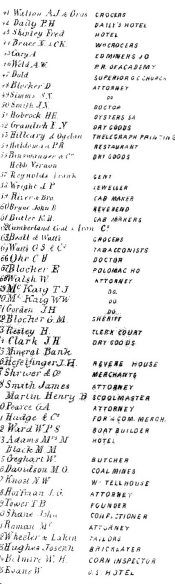 41 Walton A.J & Bros GROCERS
42 Daily P.H DAILY'S HOTEL
43 Shirley Fred HOTEL
44 Bruce & CK. W GROCERS
45 Cary A COMMINERS IO
46 Weld A.W PR. OF ACADEMY
47 SUPERIOR CHURCH
48 Blocher D ATTORNEY
49 S.N DO
50 Smith J.N. DOCTOR
51 Habrock H.E OYSTERS &A
52 Gramlich I.N DRY GOODS
53 Hilleary & Ogden TELEGRAPH PRINTING
54 P.R RESTAURANT
55 & Co DRY GOODS
Vernon
57 Reynolds Frank GENT
58 Wright J.P JEWELLER
59 River & Bro CAB MAKER
60 Bryer John B REVEREND
61 Butler K.B. CAB MAKERS
62 Cumberland Coal & Iron Co
63 Beall & Watts GROCERS
Watts G.S & Co TABACCONISTS
66 Ohr C.H DOCTOR
67 Blocher E POLOMAC HO
68 Walsh W. ATTORNEY
69 McKaig T.J DO.
70 McKaig W.W DO.
71 Gorden J.H DO.
72 Blocher G.M SHERIFF
73 Resley H. CLERK COURT
74 Clark J.H DRY GOODS
75 Mineral Bank
76 Hefelfinger J.H. REVERE HOUSE
Shriver & Co MERCHANTS
78 Smith James ATTORNEY
Martin Henry B SCOOLMASTER
80 Pearce G.A ATTORNEY
81 Hudge & Co FOR & COM. MERCH.
82 Ward W.P.S BOAT BUILDER
83 Adams Mrs M HOTEL
Black H.M
85 W. BUTCHER
86 Davidson M.O. COAL MINES
87 Knost N.W W. TELLHOUSE
88 Hoffman J.G. ATTORNEY
89 Tower T.B FOUNDER
90 Shane John CONFECTIONER
91 Roman Mc ATTORNEY
92 Wheeler & Lakin TAILORS
93 Hughes Joseph BRICKLAYER
94 W.H. CORN INSPECTOR
95 Evans W U.S. HOTEL